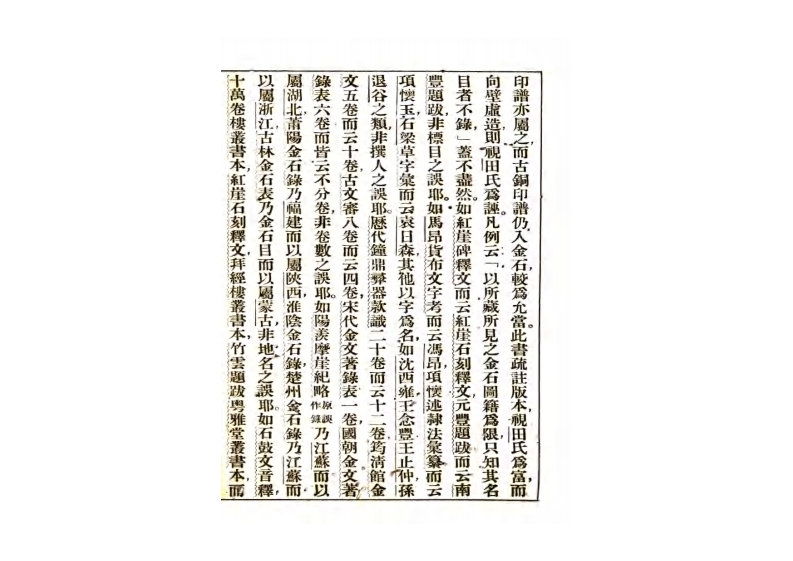 印譜亦屬之而古銅印譜仍入金石較爲允當。此書疏註版本視田氏爲富,而
向壁虛造則視田氏爲誣凡例云「以所藏所見之金石圖籍爲限,只知其名
目者不錄」蓋不盡然。如紅崖碑釋文而云紅崖石刻釋文元豐題跋而云南
豐題跋,非標目之誤耶。如馬昂貨布文字考而云馮昂,項懷述隸法彙纂而云
項懷玉,石梁草字彙而云袁日森,其他以字爲名,如沈西雍,王念豐,王止仲,孫
退谷之類,非撰人之誤耶。歷代鐘鼎彝器款識二十卷而云十二卷,筠淸館金
文五卷而云十卷,古文審八卷而云四卷,宋代金文著錄表一卷,國朝金文著
錄表六卷而皆云不分卷,非卷數之誤耶。如陽羨摩崖紀略原誤作錄乃江蘇而以
屬湖北,莆陽金石錄乃福建而以屬陝西,淮陰金石錄,楚州金石錄乃江蘇而
以屬浙江,古林金石表乃金石目而以屬蒙古,非地名之誤耶。如石鼓文音釋,
十萬卷樓叢書本,紅崖石刻釋文,拜經樓叢書本,竹雲題跋,粵雅堂叢書本,而